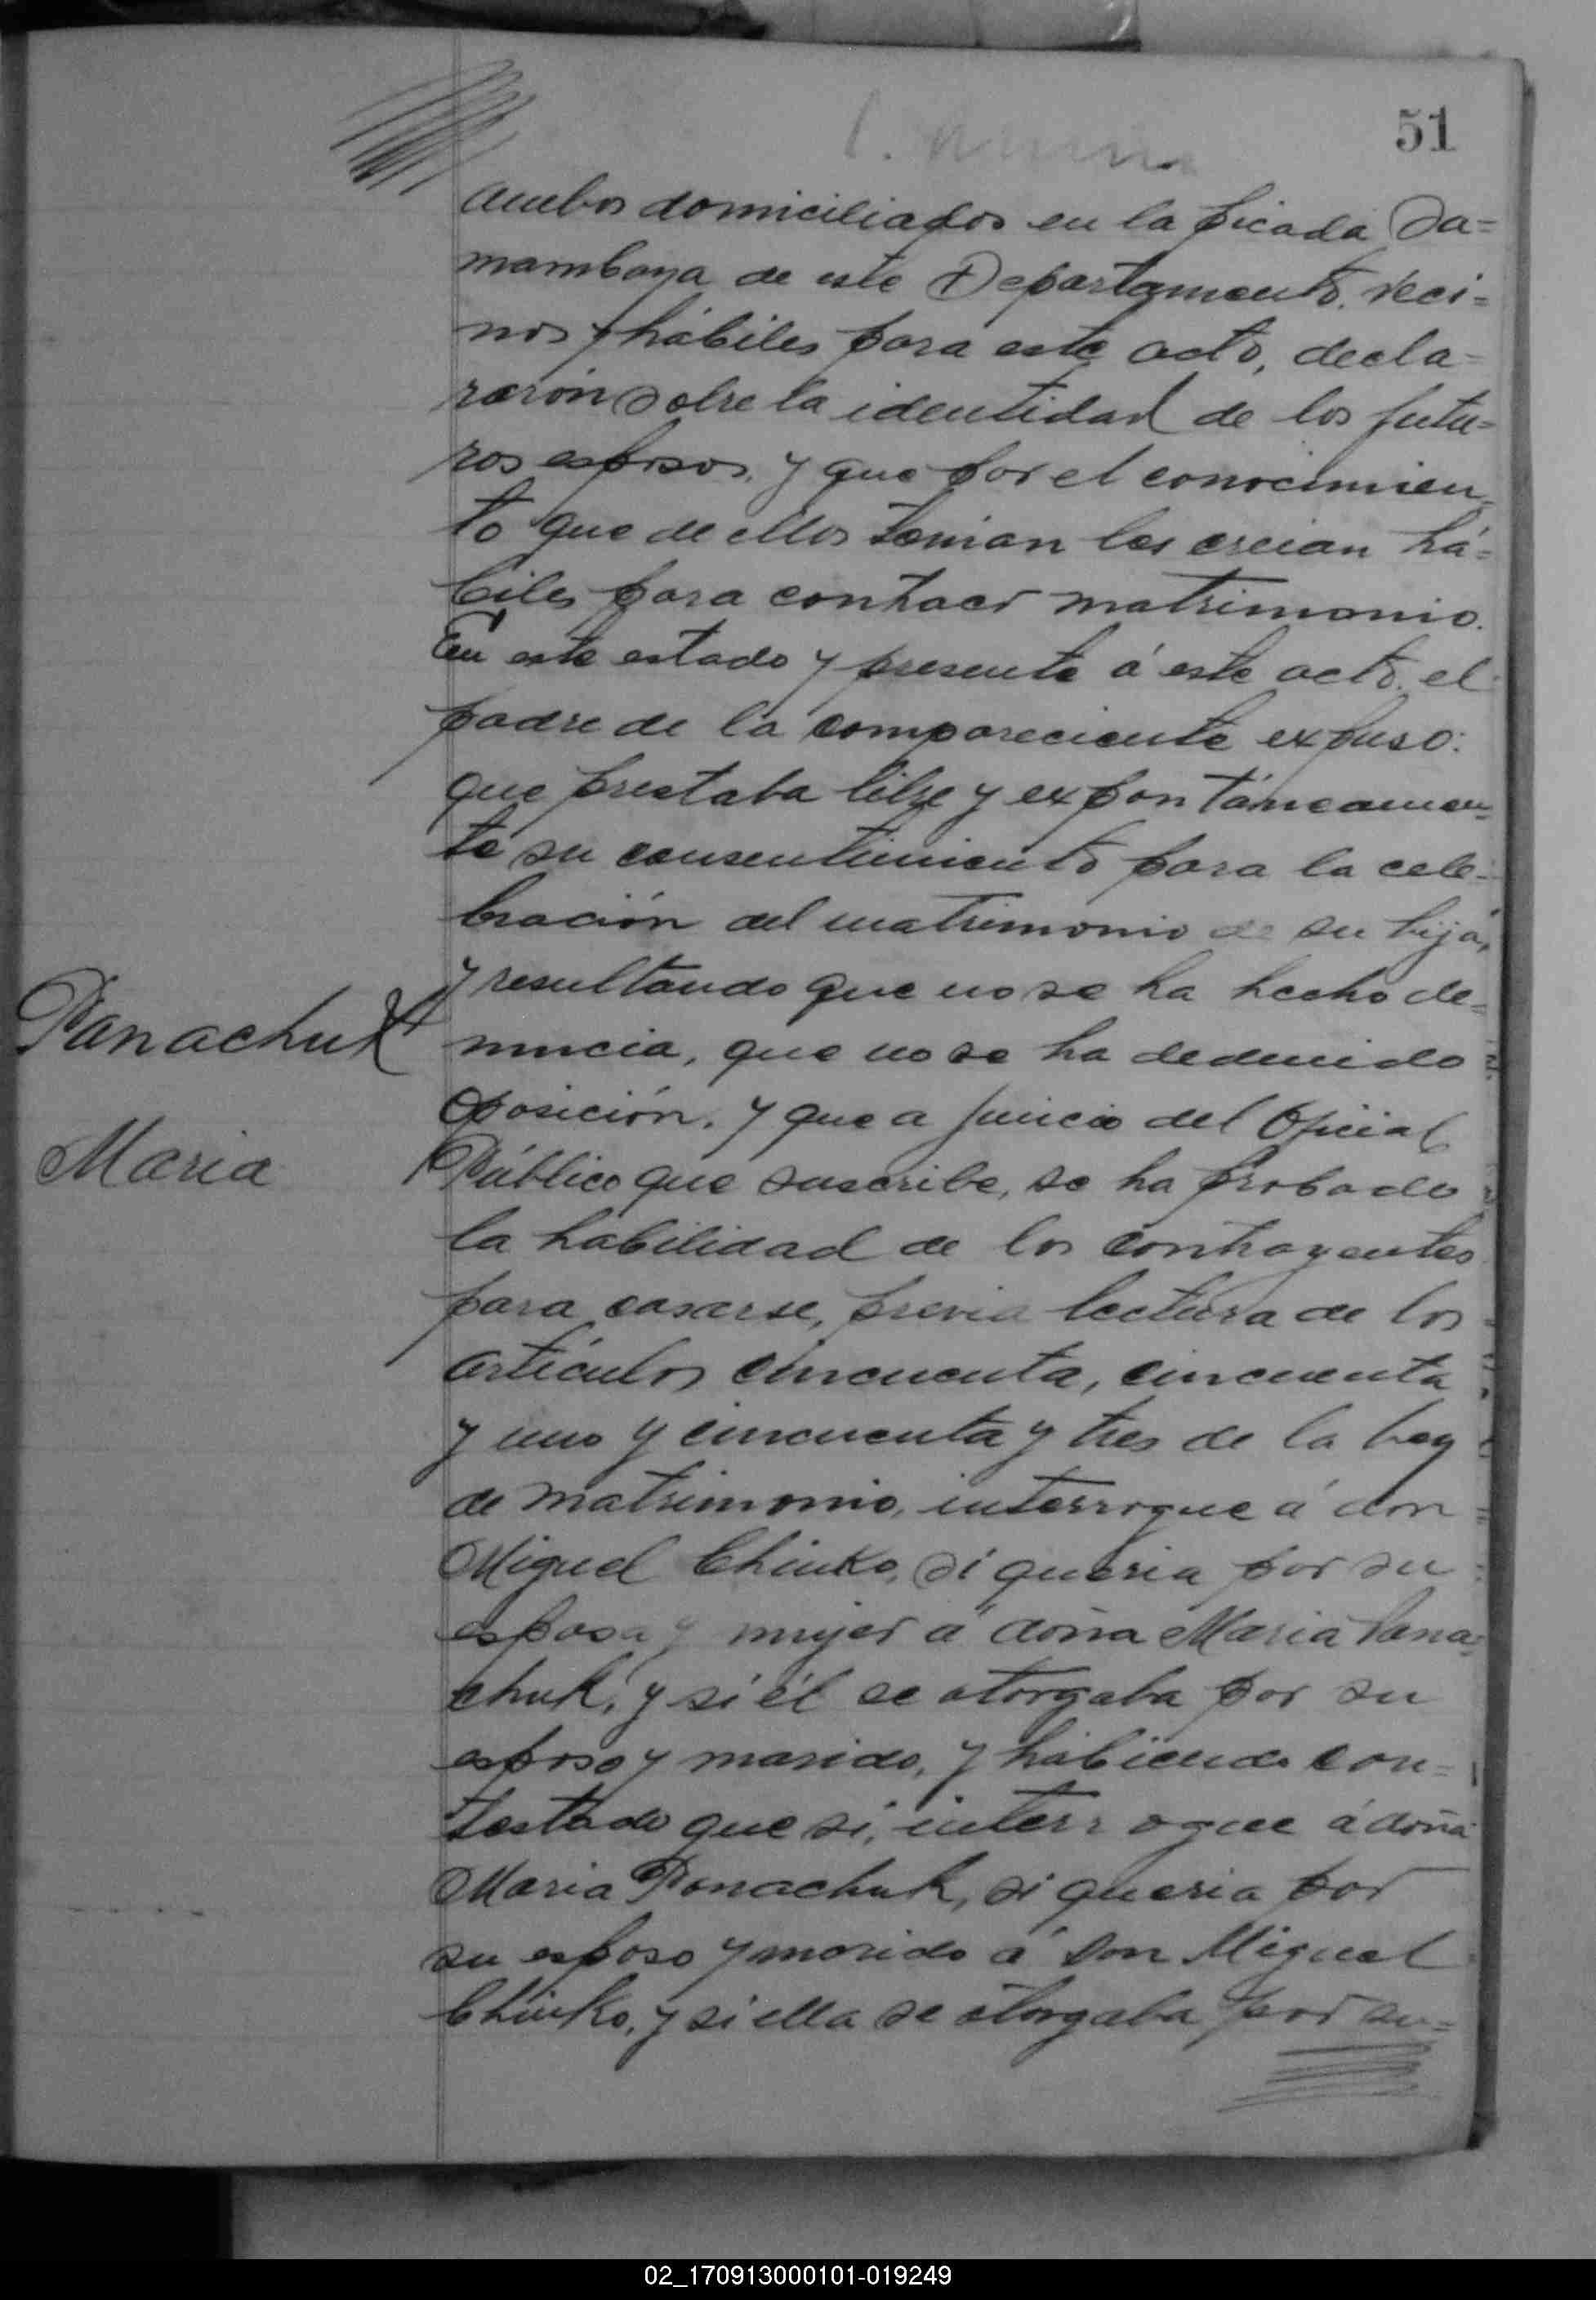 51
ambos domiciliados en la picada Sa=
mambaya de este Departamento. veci=
nos y hábiles para este acto, decla=
rarón sobre la identidad de los futu=
ros esposos, y que por el conocimien=
to que de ellos tenian los creian há=
biles para contraer matrimonio.
En este estado y presente á este acto. el
padre de la compareciente expuso:
que prestaba libre y expontáneamen=
te su consentimiento para la cele=
bración del matrimonio de su hija,
y resultando que no se ha hecho de=
nuncia, que no se ha deducido
Oposición, y que a juicio del Oficial
Público que suscribe, se ha probado
la habilidad de los contrayentes
para casarse, previa lectura de los
artículos cincuenta, cincuenta
y uno y cincuenta y tres de la Ley
de matrimonio, interrogue á don
Miguel Chinko, si queria por su
esposa y mujer a doña Maria Pana=
chuk, y si él se otorgaba por su
esposo y marido, y habiendo con=
testado que si, interrogue á doña
Maria Panachuk, si queria por
su esposo y marido á Don Miguel
Chinko, y si ella se otorgaba por su=
Panachuk
Maria
02_170913000101-019249